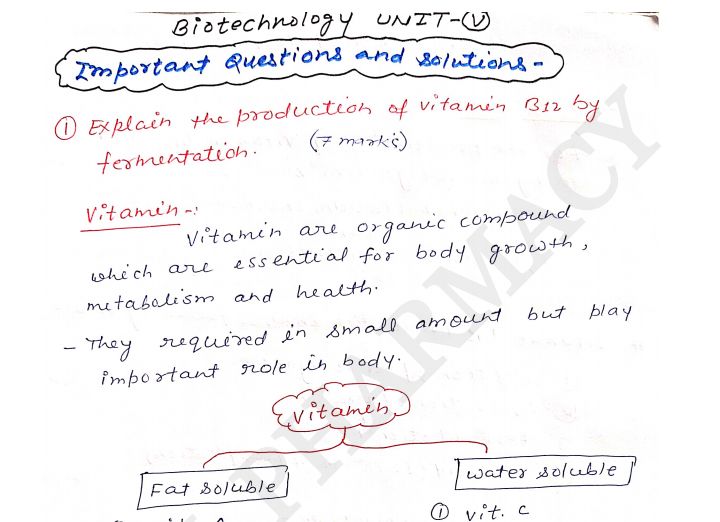 Biotechnology UNIT-V
Important Questions and solutions-
① Explain the production of vitamin B12 by
fermentation. (7 marks)
Vitamin-:
Vitamin are organic compound
which are essential for body growth,
metabolism and health.
- They required in small amount but play
important role in body.
Vitamin
Fat soluble
water soluble
① vit. C
PHARMACY